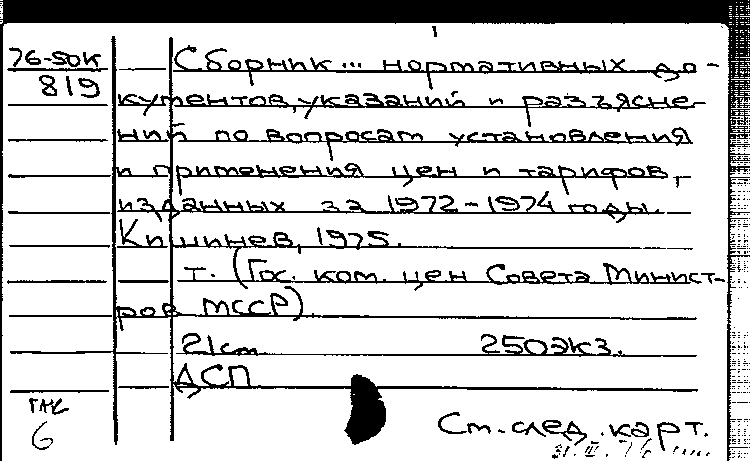 76-50К Сборник... нормативных до-
819 кументов, указаний и разъясне-
ний по вопросам установления
и применения цен и тарифов,
изданных за 1972-1974 годы.
Кишинев, 1975.
т. (Гос. ком. цен Совета Минист-
ров МССР).
21cm 250экз.
ДСП
6 Ст. след. карт.
31.III.76